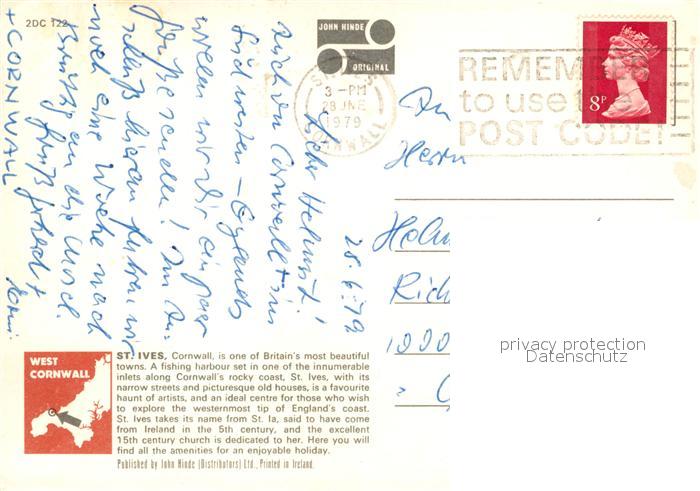 2DC 122
JOHN HINDE
ORIGINAL
3 - PM
28 JNE
1979
CORNWALL
REMEMBER
to use the
POST CODE!
8P
28.6.79
Lieber Helmut!
Auch von Cornwall im
Südwesten – Englands
wollen wir Dir ein paar
Grüße senden! Im An-
schluß hieran fahren wir
noch eine Woche nach
an die Mosel.
Gruß
+ CORNWALL
An
Herrn
Helm
Rich
1000
WEST
CORNWALL
ST. IVES, Cornwall, is one of Britain's most beautiful
towns. A fishing harbour set in one of the innumerable
inlets along Cornwall's rocky coast, St. Ives, with its
narrow streets and picturesque old houses, is a favourite
haunt of artists, and an ideal centre for those who wish
to explore the westernmost tip of England's coast.
St. Ives takes its name from St. Ia, said to have come
from Ireland in the 5th century, and the excellent
15th century church is dedicated to her. Here you will
find all the amenities for an enjoyable holiday.
Published by John Hinde (Distributors) Ltd., Printed in Ireland.
privacy protection
Datenschutz